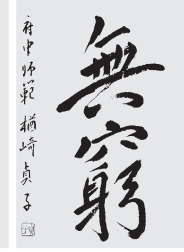 無窮
府中師範 楢崎貞子